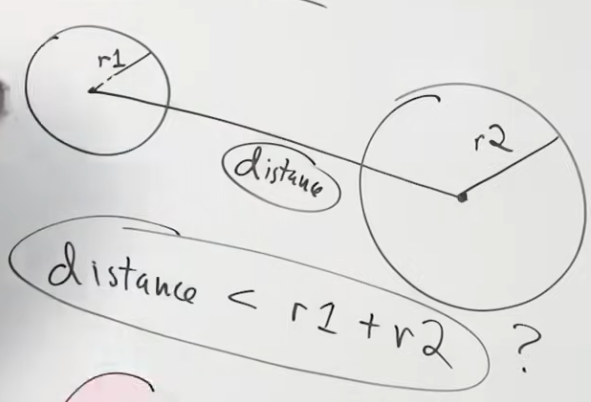 r1
r2
distance
distance < r1 + r2 ?